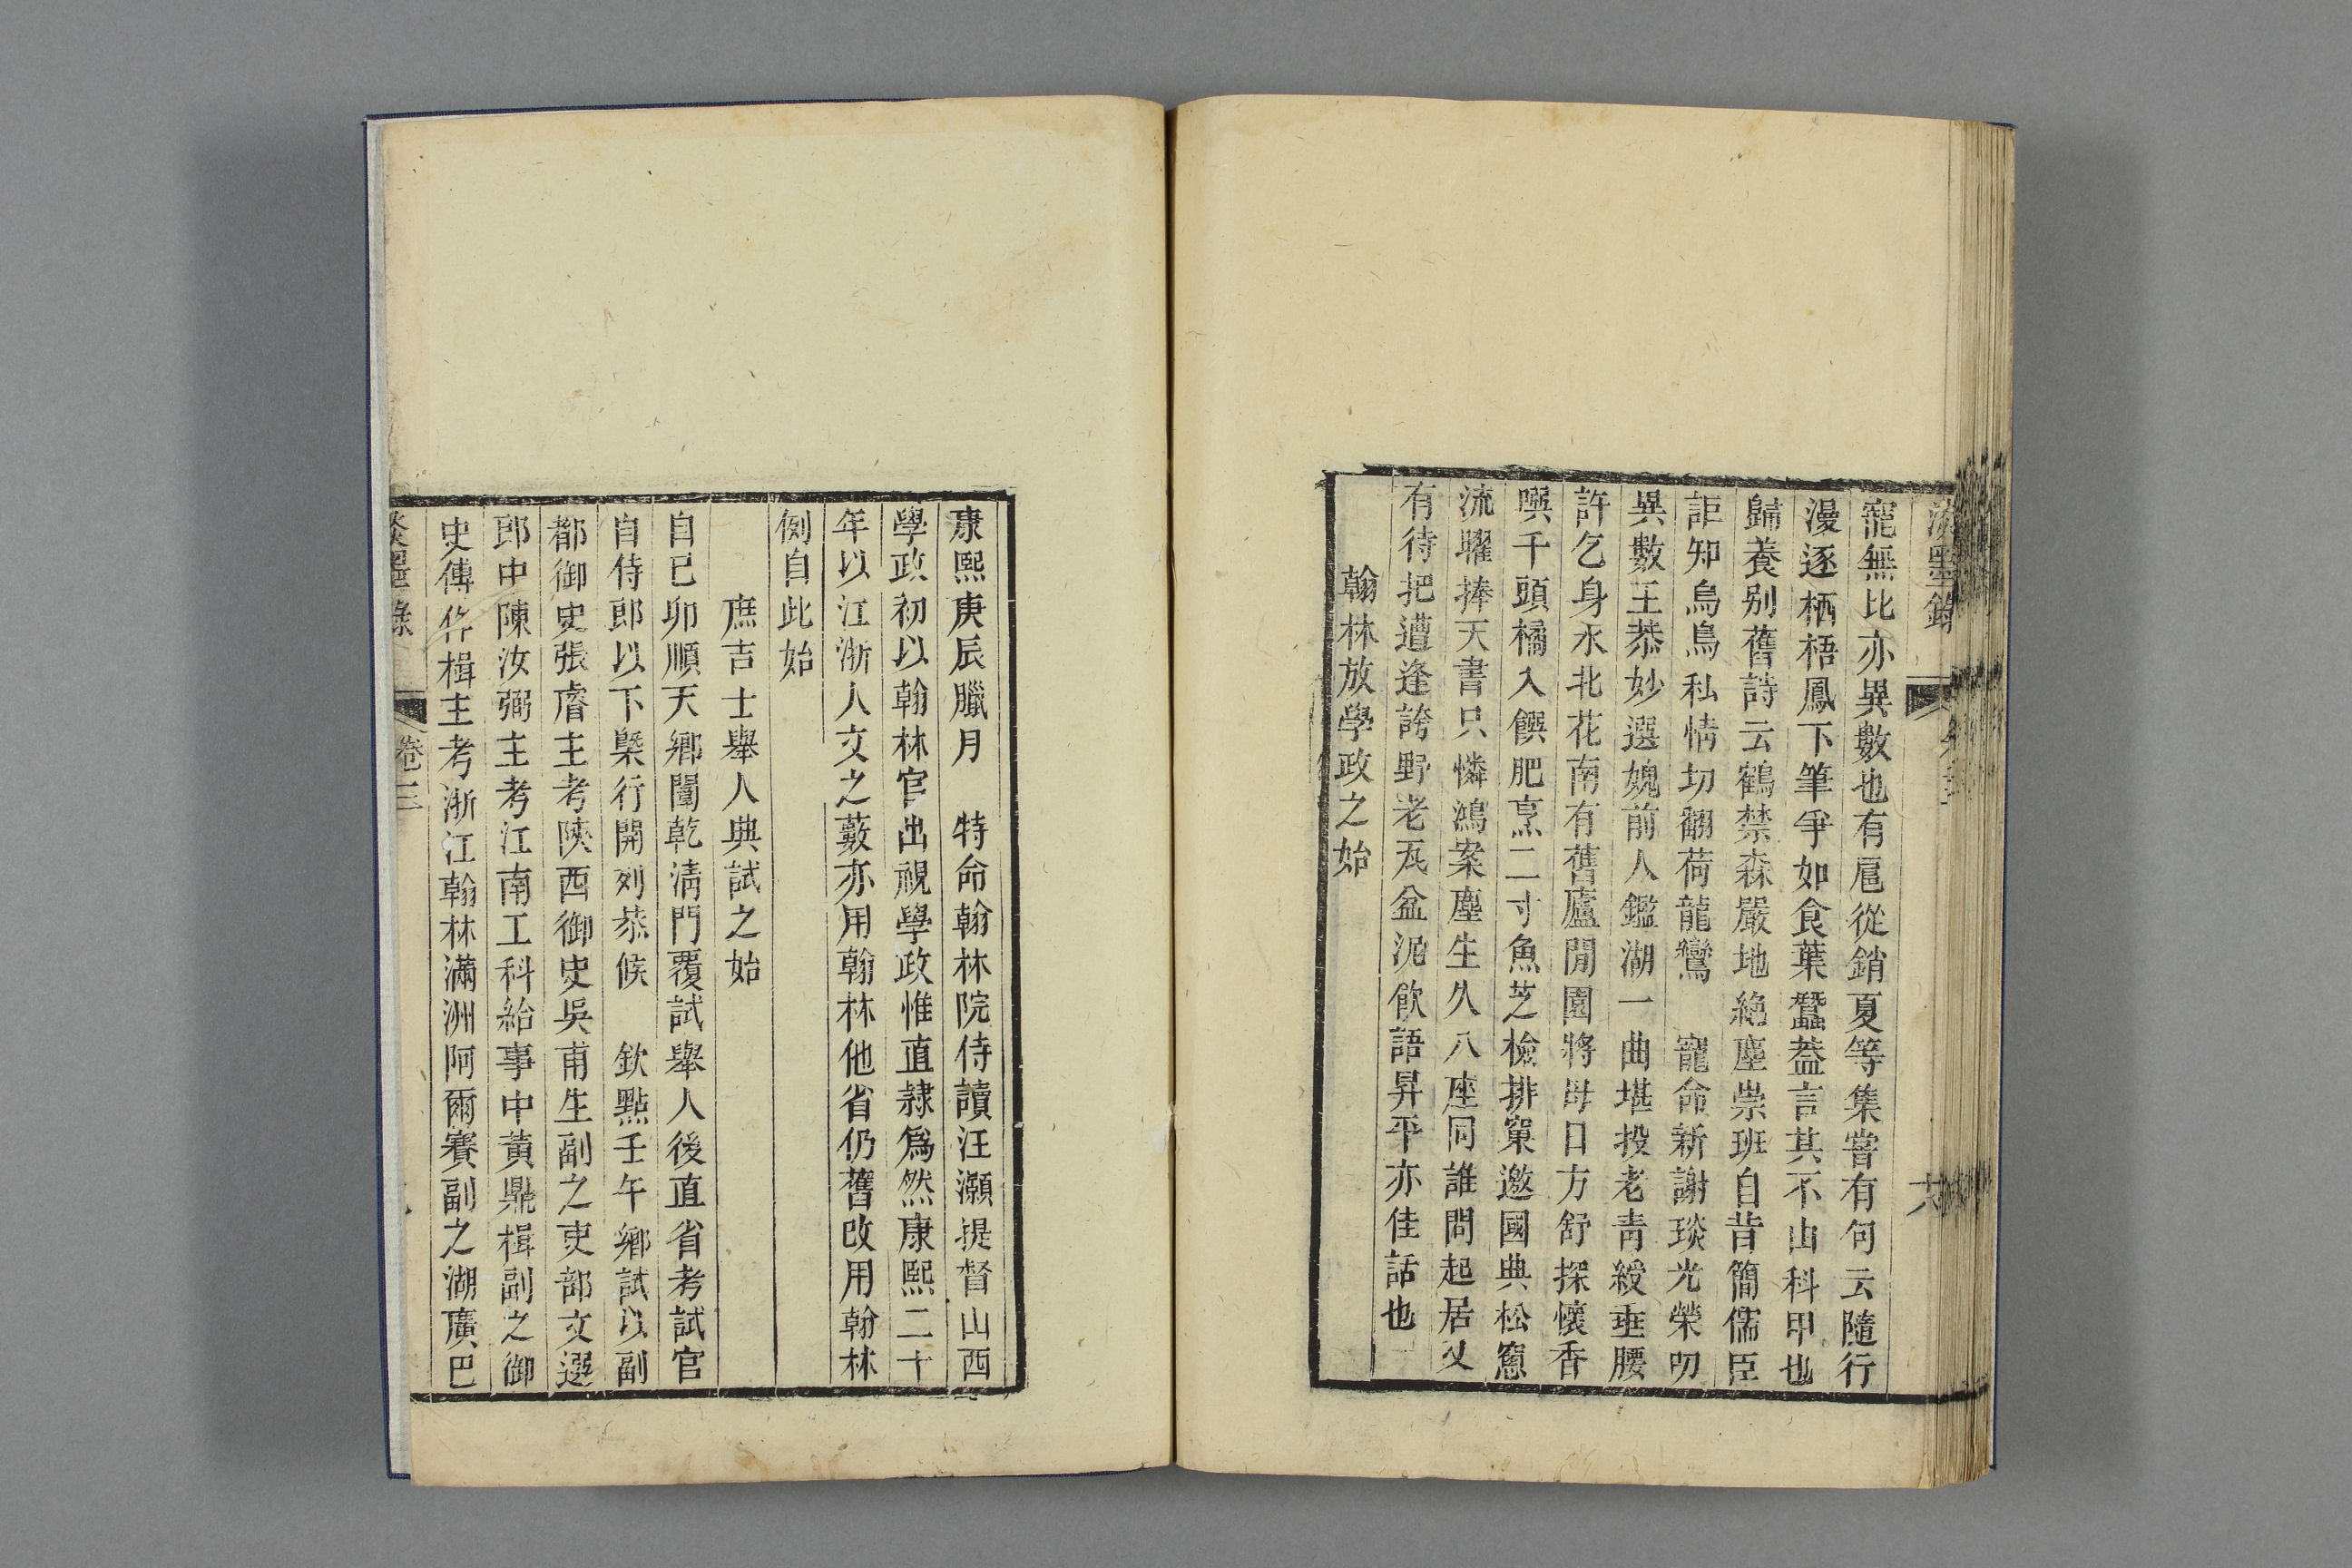 淡墨錄
六
寵無比亦異數也有扈從銷夏等集嘗有句云隨行
漫逐栖梧鳳下筆爭如食葉蠶蓋言其不由科甲也
歸養别舊詩云鶴禁森嚴地絶塵崇班自昔簡儒臣
詎知烏鳥私情切翻荷龍鸞　寵命新謝琰光榮叨
異數王恭妙選媿前人鑑湖一曲堪投老青綬垂腰
許乞身水北花南有舊廬閒園將母日方舒探懷香
噀千頭橘入饌肥烹二寸魚芝檢排窠邀國典松窻
流曜捧天書只憐鴻案塵生久八座同誰問起居又
有待把遭逢誇野老瓦盆泥飲語昇平亦佳話也
翰林放學政之始
康熙庚辰臘月　特命翰林院侍讀汪灝提督山西
學政初以翰林官出視學政惟直隸爲然康熙二十
年以江浙人文之藪亦用翰林他省仍舊改用翰林
例自此始
庶吉士舉人典試之始
自已卯順天鄉闈乾淸門覆試舉人後直省考試官
自侍郎以下槩行開列恭候　欽點壬午鄉試以副
都御史張睿主考陝西御史吳甫生副之吏部文選
郎中陳汝弼主考江南工科給事中黃鼎楫副之御
史傅作楫主考浙江翰林滿洲阿爾賽副之湖廣巴
淡墨錄
卷三